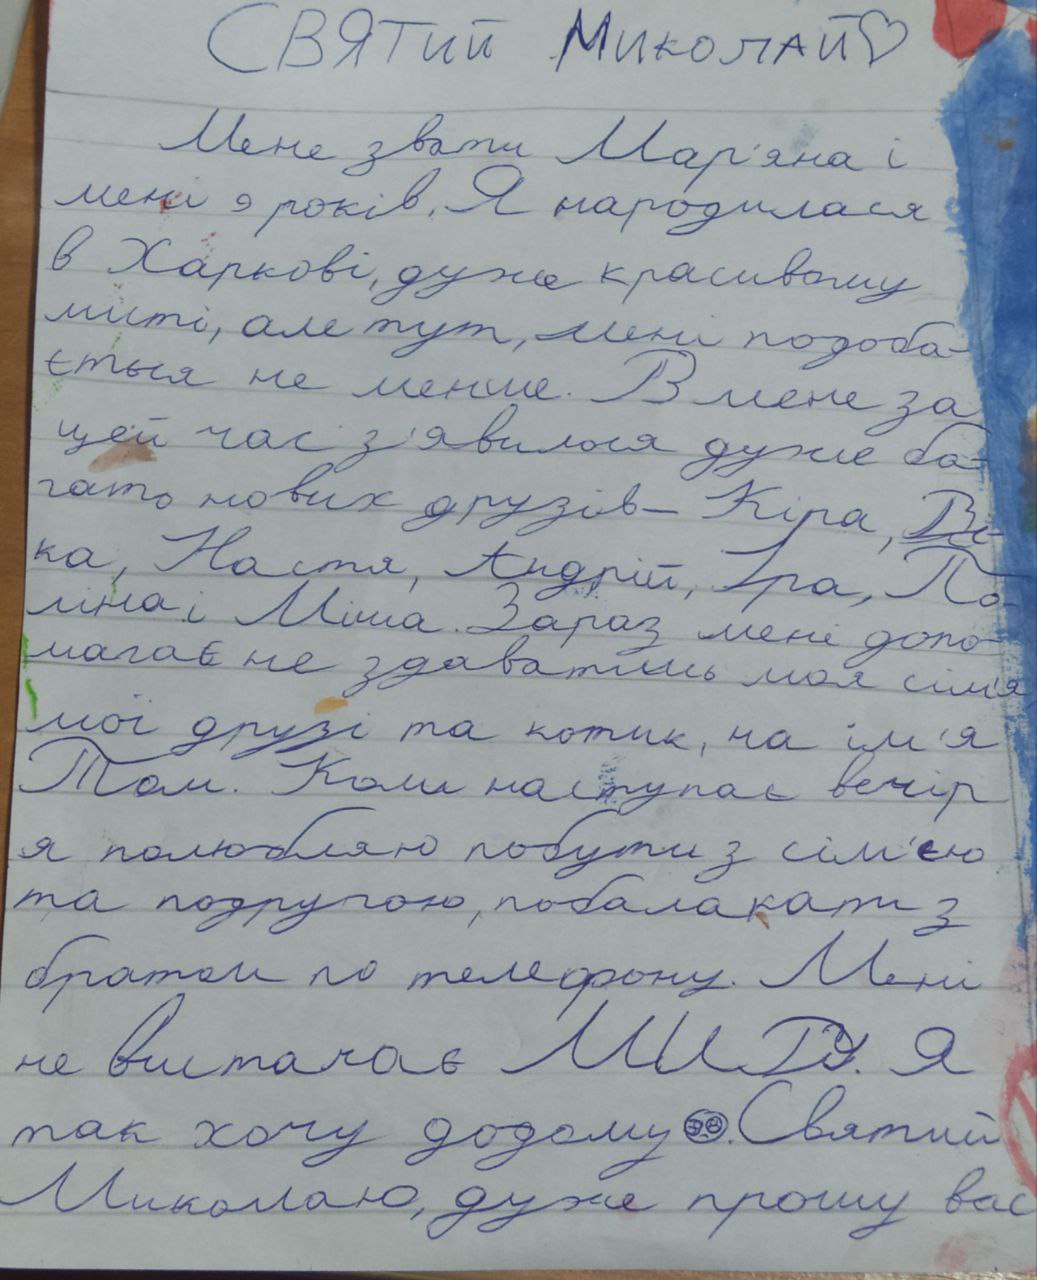 СВЯТИЙ МИКОЛАЙ♡
Мене звати Мар'яна і
мені 9 років. Я народилася
в Харкові, дуже красивому
миті, але тут, мені подоба-
ється не менше. В мене за
цей час з'явилося дуже ба-
гато нових друзів – Кіра, Ві-
ка, Настя, Андрій, Іра, По-
ліна і Міша. Зараз мені допо-
магає не здаватись моя сім'я
мої друзі та котик, на ім'я
Том. Коли наступає вечір
я полюбляю побути з сім'єю
та подругою, побалакати з
братом по телефону. Мені
не вистачає МИРУ. Я
так хочу додому. Святий
Миколаю, дуже прошу вас